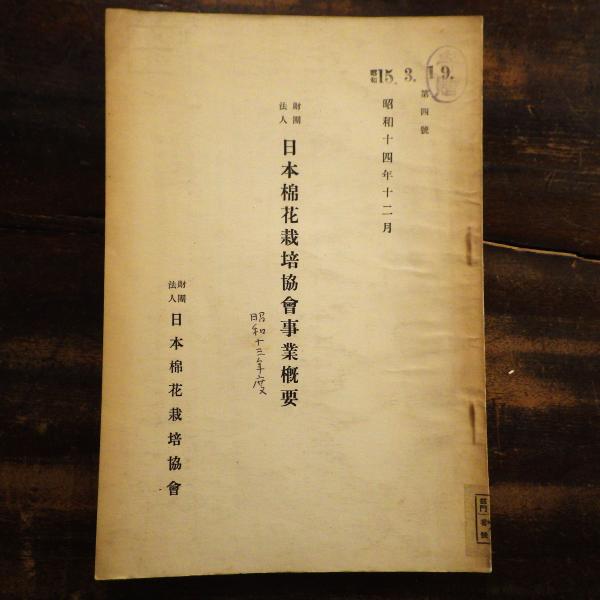 昭和 15. 3. 19.
第四號
昭和十四年十二月
財團法人 日本棉花栽培協會事業概要
昭和十三年度
財團法人 日本棉花栽培協會
部門
番號